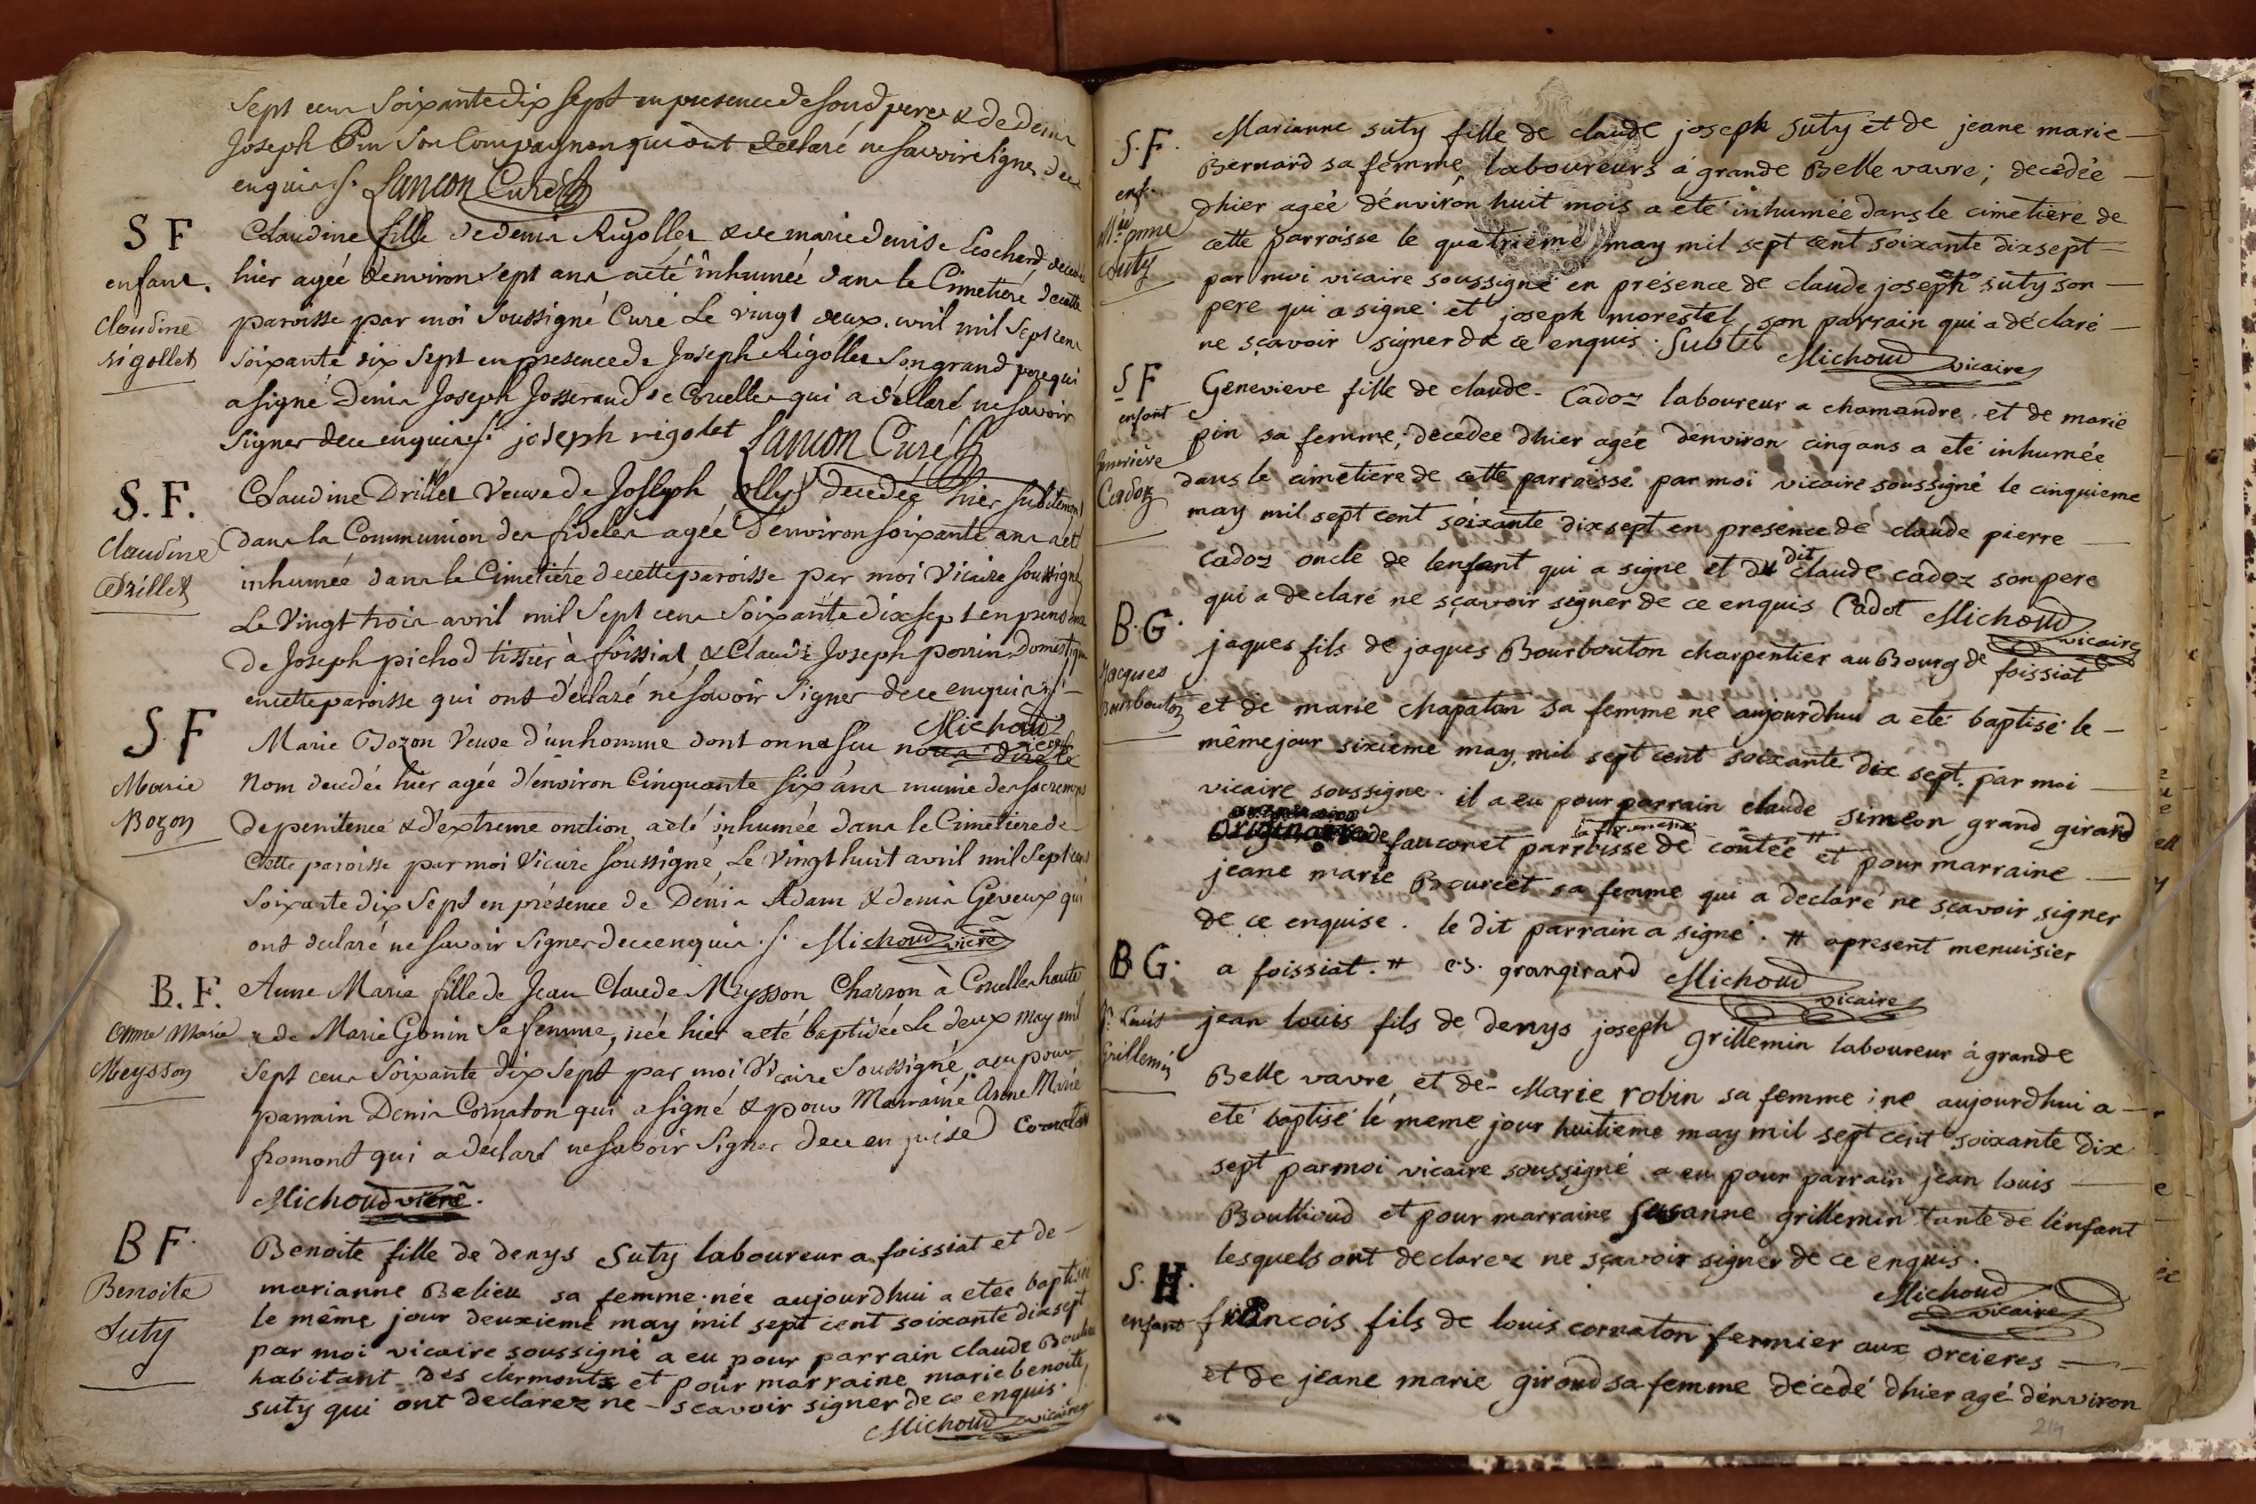 Sept cens Soixante dix sept en presence de son d pere & de Denis
Joseph Pin Son Compagnon qui ont declaré ne savoir signer de ce
enquis ./. Lancon Curé
S F
enfant.
Claudine
rigollet
Claudine fille de denis Rigollet & de marie denise Ecochard decedée
hier agée d'environ sept ans a eté inhumée dans le Cimetiere de cette
paroisse par moi Soussigné Curé Le vingt deux avril mil Sept cens
Soixante dix Sept en presence de Joseph Rigollet Son grand pere qui
a signé Denis Joseph Josserand de Cuelles qui a déclaré ne savoir
Signer de ce enquis ./. joseph rigolet Lancon Curé
S. F.
Claudine
Drillet
Claudine Drillet Veuve de Joseph decedée hier subitement
dans la Communion des fideles agée d'environ soixante ans a eté
inhumée dans le Cimetiére de cette paroisse par moi Vicaire soussigné
Le Vingt trois avril mil Sept cens Soixante dix sept en presence
de Joseph pichod tissier à foissiat & Claude Joseph perrin Domestique
en cette paroisse qui ont déclaré ne savoir Signer de ce enquis ./.
Michoud vicre
S F
Marie
Bozon
Marie Bozon Veuve d'un homme dont on na scu nous dire le
Nom decedée hier agée d'énviron Cinquante six ans munie des sacremens
de penitence & d'extreme onction, a eté inhumée dans le Cimetiere de
Cette paroisse par moi Vicaire soussigné, Le Vingt huit avril mil Sept cens
Soixante dix Sept en présence de Dénis Adam & denis Géveux qui
ont declaré ne savoir Signer de ce enquis ./. Michoud vicre
B. F.
Anne Maria
Meysson
Anne Maria fille de Jean Claude Meysson Charron à Cuelles haute
& de Marie Gonin Sa femme, née hier a eté baptisée Le deux may mil
Sept cens Soixante dix Sept par moi Vicaire Soussigné, a eu pour
parrain Denis Cornaton qui a signé & pour Marraine Anne Marie
fromont qui a declaré ne savoir Signer de ce enquise Cornaton
Michoud vicre.
B F.
Benoite
Suty
Benoite fille de denys Suty laboureur a foissiat et de
marianne Belieu sa femme. née aujourdhui a etee baptisée
le même jour deuxieme may mil sept cent soixante dix sept
par moi vicaire soussigné a eu pour parrain claude
habitant des clermonts et pour marraine marie benoite
suty qui ont declarez ne scavoir signer de ce enquis.
Michoud vicaire
S. F.
enf.
Mie anne
Suty
Marianne suty fille de claude joseph suty et de jeane marie
Bernard sa fémme laboureurs á grande Belle vavre; decedée
dhier agéé d'énvirón huit mois a eté inhumée dans le cimetiere de
cette parroisse le quatrieme may mil sept cent soixante dix sept
par moi vicaire soussigné en présence de claude joseph suty son
pere qui a signé et joseph morestel son parrain qui a déclaré
ne sçavoir signer de ce enquis. Michoud vicaire
S F
enfant
Genevieve
Cadoz
Genevieve fille de claude Cadoz laboureur a chamandre et de marie
pin sa femme; decedée dhier agée denviron cinq ans a eté inhumée
dans le cimetiere de cette parroisse par moi vicaire soussigné le cinquieme
may mil sept cent soixante dix sept en presence de claude pierre
cadoz oncle de lenfant qui a signé et du dit claude cadoz son pere
qui a declaré ne sçavoir signer de ce enquis Cadot Michoud vicaire
B. G.
Jacques
Bourbouton
jaques fils de jaques Bourbouton charpentier au Bourg de foissiat
et de marie chapatan sa femme né aujourdhui a eté baptisé le
même jour sixieme may, mil sept cent soixante dix sept. par moi
vicaire soussigné. il a eu pour parrain claude simeon grand girard
originaire de fauconet parroisse de contée # et pour marraine
jeane marie Bourcet sa femme qui a declaré ne scavoir signer
de ce enquise. le dit parrain a signé. # apresent menuisier
a foissiat. # c.s. grangirard Michoud vicaire
B G.
Jn Louis
Grillemin
jean louis fils de denys joseph grillemin laboureur á grande
Belle vavre et de Marie robin sa femme; né aujourdhui a
eté baptisé le meme jour huitieme may mil sept cent soixante dix
sept par moi vicaire soussigné a eu pour parrain jean louis
Boullioud et pour marraine susanne grillemin tante de lénfant
lesquels ont declarez ne sçavoir signer de ce enquis.
Michoud vicaire
S. H.
enfant
francois fils de louis cornaton fermier aux orcieres
et de jéane marie giroud sa femme décedé dhier agé dénviron
214